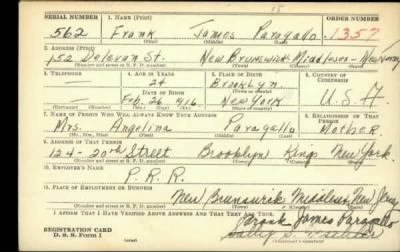 SERIAL NUMBER 1. NAME (Print) ORDER NUMBER
562 Frank James Paragallo 1357
2. ADDRESS (Print)
152 Delevan St. New Brunswick Middlesex New Jersey
(Number and street or R. F. D. number) (Town) (County) (State)
3. TELEPHONE 4. AGE IN YEARS 5. PLACE OF BIRTH 6. COUNTRY OF CITIZENSHIP
24 Brooklyn
DATE OF BIRTH (Town or county)
Feb. 26 1916 New York U.S.A
(Exchange) (Number) (Mo.) (Day) (Yr.) (State or country)
7. NAME OF PERSON WHO WILL ALWAYS KNOW YOUR ADDRESS 8. RELATIONSHIP OF THAT PERSON
Mrs. Angelina Paragallo Mother
(Mr., Mrs., Miss) (First) (Middle) (Last)
9. ADDRESS OF THAT PERSON
124-20th Street Brooklyn Kings New York
(Number and street or R. F. D. number) (Town) (County) (State)
10. EMPLOYER'S NAME
P.R.R.
11. PLACE OF EMPLOYMENT OR BUSINESS
New Brunswick Middlesex New Jersey
(Number and street or R. F. D. number) (Town) (County) (State)
I AFFIRM THAT I HAVE VERIFIED ABOVE ANSWERS AND THAT THEY ARE TRUE.
Frank James Paragallo
REGISTRATION CARD
D. S. S. Form 1